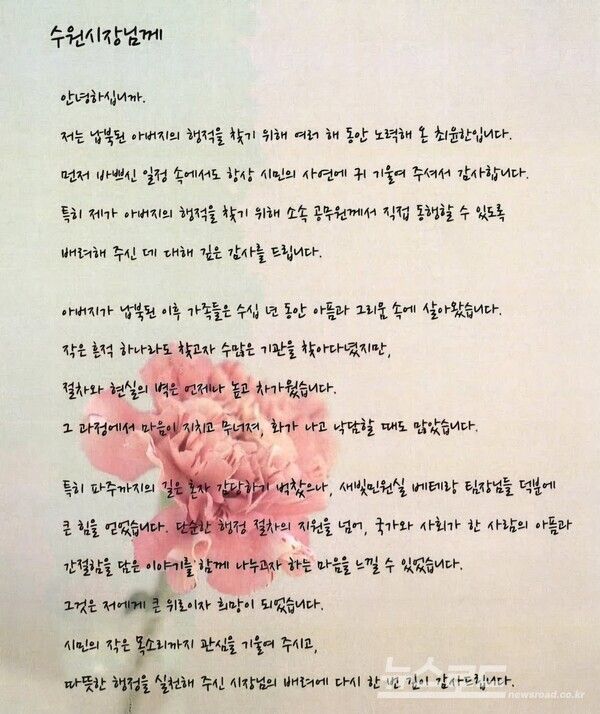 수원시장님께
안녕하십니까.
저는 납북된 아버지의 행적을 찾기 위해 여러 해 동안 노력해 온 최윤한입니다.
먼저 바쁘신 일정 속에서도 항상 시민의 사연에 귀 기울여 주셔서 감사합니다.
특히 제가 아버지의 행적을 찾기 위해 소속 공무원께서 직접 동행할 수 있도록
배려해 주신 데 대해 깊은 감사를 드립니다.
아버지가 납북된 이후 가족들은 수십 년 동안 아픔과 그리움 속에 살아왔습니다.
작은 흔적 하나라도 찾고자 수많은 기관을 찾아다녔지만,
절차와 현실의 벽은 언제나 높고 차가웠습니다.
그 과정에서 마음이 지치고 무너져, 화가 나고 낙담할 때도 많았습니다.
특히 파주까지의 길은 혼자 감당하기 벅찼으나, 새빛민원실 베테랑 팀장님들 덕분에
큰 힘을 얻었습니다. 단순한 행정 절차의 지원을 넘어, 국가와 사회가 한 사람의 아픔과
간절함을 담은 이야기를 함께 나누고자 하는 마음을 느낄 수 있었습니다.
그것은 저에게 큰 위로이자 희망이 되었습니다.
시민의 작은 목소리까지 관심을 기울여 주시고,
따뜻한 행정을 실천해 주신 시장님의 배려에 다시 한 번 깊이 감사드립니다.
뉴스로드
newsroad.co.kr